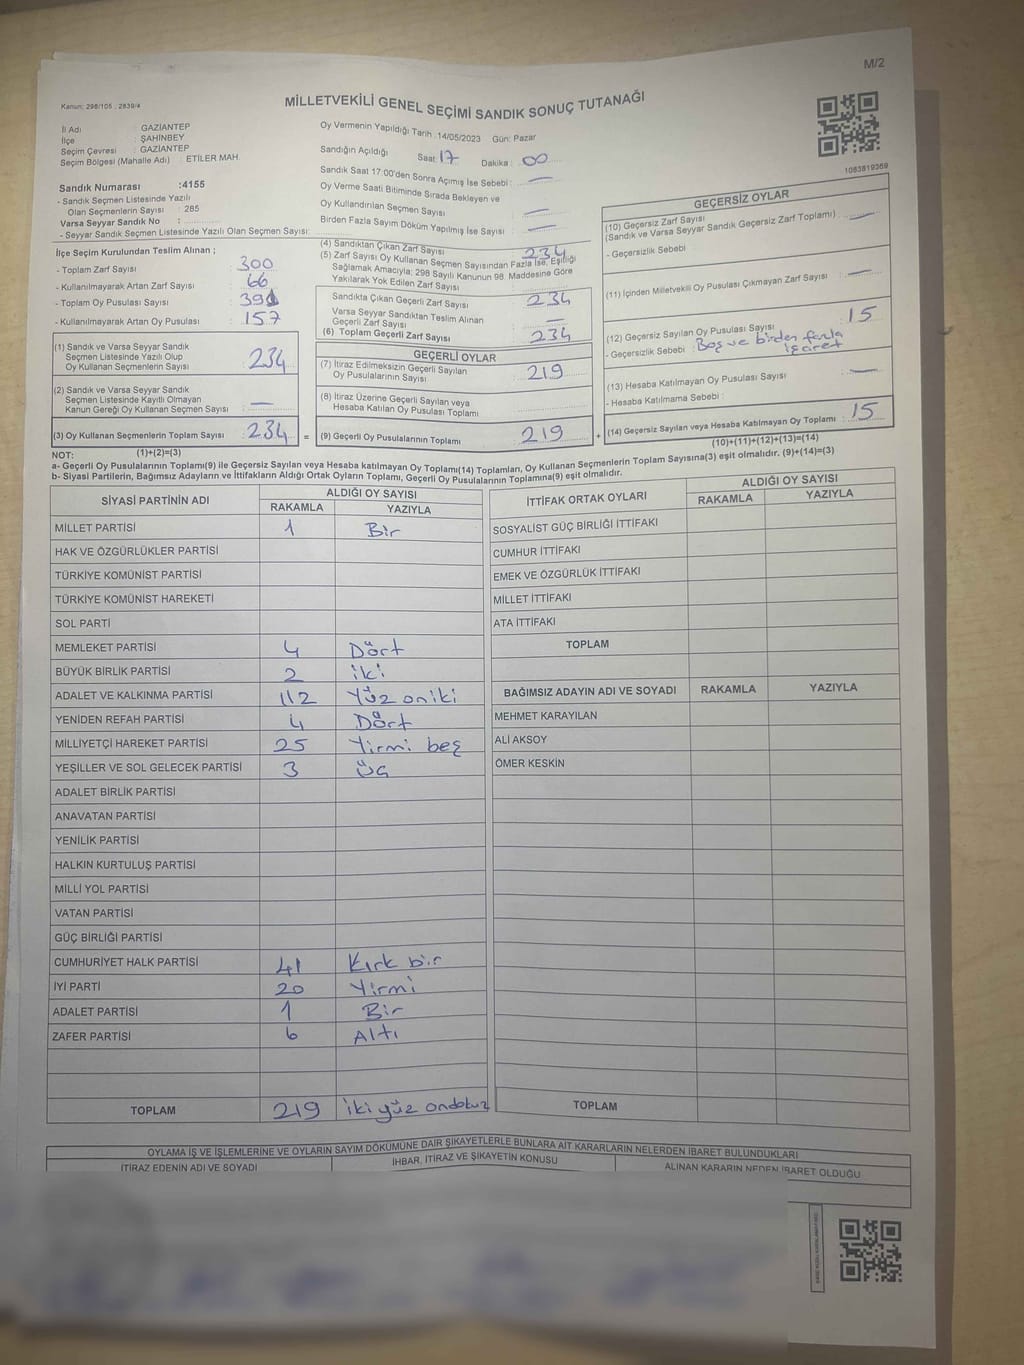 M/2
Kanun: 298/105 , 2839/4
MİLLETVEKİLİ GENEL SEÇİMİ SANDIK SONUÇ TUTANAĞI
İl Adı : GAZİANTEP
İlçe : ŞAHİNBEY
Seçim Çevresi : GAZİANTEP
Seçim Bölgesi (Mahalle Adı) : ETİLER MAH.
Sandık Numarası :4155
- Sandık Seçmen Listesinde Yazılı
Olan Seçmenlerin Sayısı : 285
Varsa Seyyar Sandık No :
- Seyyar Sandık Seçmen Listesinde Yazılı Olan Seçmen Sayısı:
Oy Vermenin Yapıldığı Tarih :14/05/2023 Gün: Pazar
Sandığın Açıldığı Saat: 17 Dakika : 00
Sandık Saat 17:00'den Sonra Açımış İse Sebebi : —
Oy Verme Saati Bitiminde Sırada Bekleyen ve
Oy Kullandırılan Seçmen Sayısı : —
Birden Fazla Sayım Döküm Yapılmış İse Sayısı : —
1083819369
İlçe Seçim Kurulundan Teslim Alınan ;
- Toplam Zarf Sayısı : 300
- Kullanılmayarak Artan Zarf Sayısı : 66
- Toplam Oy Pusulası Sayısı : 391
- Kullanılmayarak Artan Oy Pusulası : 157
(1) Sandık ve Varsa Seyyar Sandık
Seçmen Listesinde Yazılı Olup
Oy Kullanan Seçmenlerin Sayısı : 234
(2) Sandık ve Varsa Seyyar Sandık
Seçmen Listesinde Kayıtlı Olmayan
Kanun Gereği Oy Kullanan Seçmen Sayısı : —
(3) Oy Kullanan Seçmenlerin Toplam Sayısı : 234
(4) Sandıktan Çıkan Zarf Sayısı : 234
(5) Zarf Sayısı Oy Kullanan Seçmen Sayısından Fazla İse, Eşitliği
Sağlamak Amacıyla; 298 Sayılı Kanunun 98. Maddesine Göre
Yakılarak Yok Edilen Zarf Sayısı :
Sandıkta Çıkan Geçerli Zarf Sayısı : 234
Varsa Seyyar Sandıktan Teslim Alınan
Geçerli Zarf Sayısı : —
(6) Toplam Geçerli Zarf Sayısı : 234
GEÇERLİ OYLAR
(7) İtiraz Edilmeksizin Geçerli Sayılan
Oy Pusulalarının Sayısı : 219
(8) İtiraz Üzerine Geçerli Sayılan veya
Hesaba Katılan Oy Pusulası Toplamı :
= (9) Geçerli Oy Pusulalarının Toplamı : 219
GEÇERSİZ OYLAR
(10) Geçersiz Zarf Sayısı
(Sandık ve Varsa Seyyar Sandık Geçersiz Zarf Toplamı) : —
- Geçersizlik Sebebi :
(11) İçinden Milletvekili Oy Pusulası Çıkmayan Zarf Sayısı : —
(12) Geçersiz Sayılan Oy Pusulası Sayısı : 15
- Geçersizlik Sebebi : Boş ve birden fazla
işaret
(13) Hesaba Katılmayan Oy Pusulası Sayısı : —
- Hesaba Katılmama Sebebi :
+ (14) Geçersiz Sayılan veya Hesaba Katılmayan Oy Toplamı : 15
NOT: (1)+(2)=(3)
(10)+(11)+(12)+(13)=(14)
a- Geçerli Oy Pusulalarının Toplamı(9) ile Geçersiz Sayılan veya Hesaba katılmayan Oy Toplamı(14) Toplamları, Oy Kullanan Seçmenlerin Toplam Sayısına(3) eşit olmalıdır. (9)+(14)=(3)
b- Siyasi Partilerin, Bağımsız Adayların ve İttifakların Aldığı Ortak Oyların Toplamı, Geçerli Oy Pusulalarının Toplamına(9) eşit olmalıdır.
SİYASİ PARTİNİN ADI
ALDIĞI OY SAYISI
RAKAMLA YAZIYLA
MİLLET PARTİSİ 1 Bir
HAK VE ÖZGÜRLÜKLER PARTİSİ
TÜRKİYE KOMÜNİST PARTİSİ
TÜRKİYE KOMÜNİST HAREKETİ
SOL PARTİ
MEMLEKET PARTİSİ 4 Dört
BÜYÜK BİRLİK PARTİSİ 2 iki
ADALET VE KALKINMA PARTİSİ 112 Yüz oniki
YENİDEN REFAH PARTİSİ 4 Dört
MİLLİYETÇİ HAREKET PARTİSİ 25 Yirmi beş
YEŞİLLER VE SOL GELECEK PARTİSİ 3 üç
ADALET BİRLİK PARTİSİ
ANAVATAN PARTİSİ
YENİLİK PARTİSİ
HALKIN KURTULUŞ PARTİSİ
MİLLİ YOL PARTİSİ
VATAN PARTİSİ
GÜÇ BİRLİĞİ PARTİSİ
CUMHURİYET HALK PARTİSİ 41 Kırk bir
İYİ PARTİ 20 Yirmi
ADALET PARTİSİ 1 Bir
ZAFER PARTİSİ 6 Altı
TOPLAM 219 iki yüz ondokuz
İTTİFAK ORTAK OYLARI
ALDIĞI OY SAYISI
RAKAMLA YAZIYLA
SOSYALİST GÜÇ BİRLİĞİ İTTİFAKI
CUMHUR İTTİFAKI
EMEK VE ÖZGÜRLÜK İTTİFAKI
MİLLET İTTİFAKI
ATA İTTİFAKI
TOPLAM
BAĞIMSIZ ADAYIN ADI VE SOYADI RAKAMLA YAZIYLA
MEHMET KARAYILAN
ALİ AKSOY
ÖMER KESKİN
TOPLAM
OYLAMA İŞ VE İŞLEMLERİNE VE OYLARIN SAYIM DÖKÜMÜNE DAİR ŞİKAYETLERLE BUNLARA AİT KARARLARIN NELERDEN İBARET BULUNDUKLARI
İTİRAZ EDENİN ADI VE SOYADI İHBAR, İTİRAZ VE ŞİKAYETİN KONUSU ALINAN KARARIN NEDEN İBARET OLDUĞU